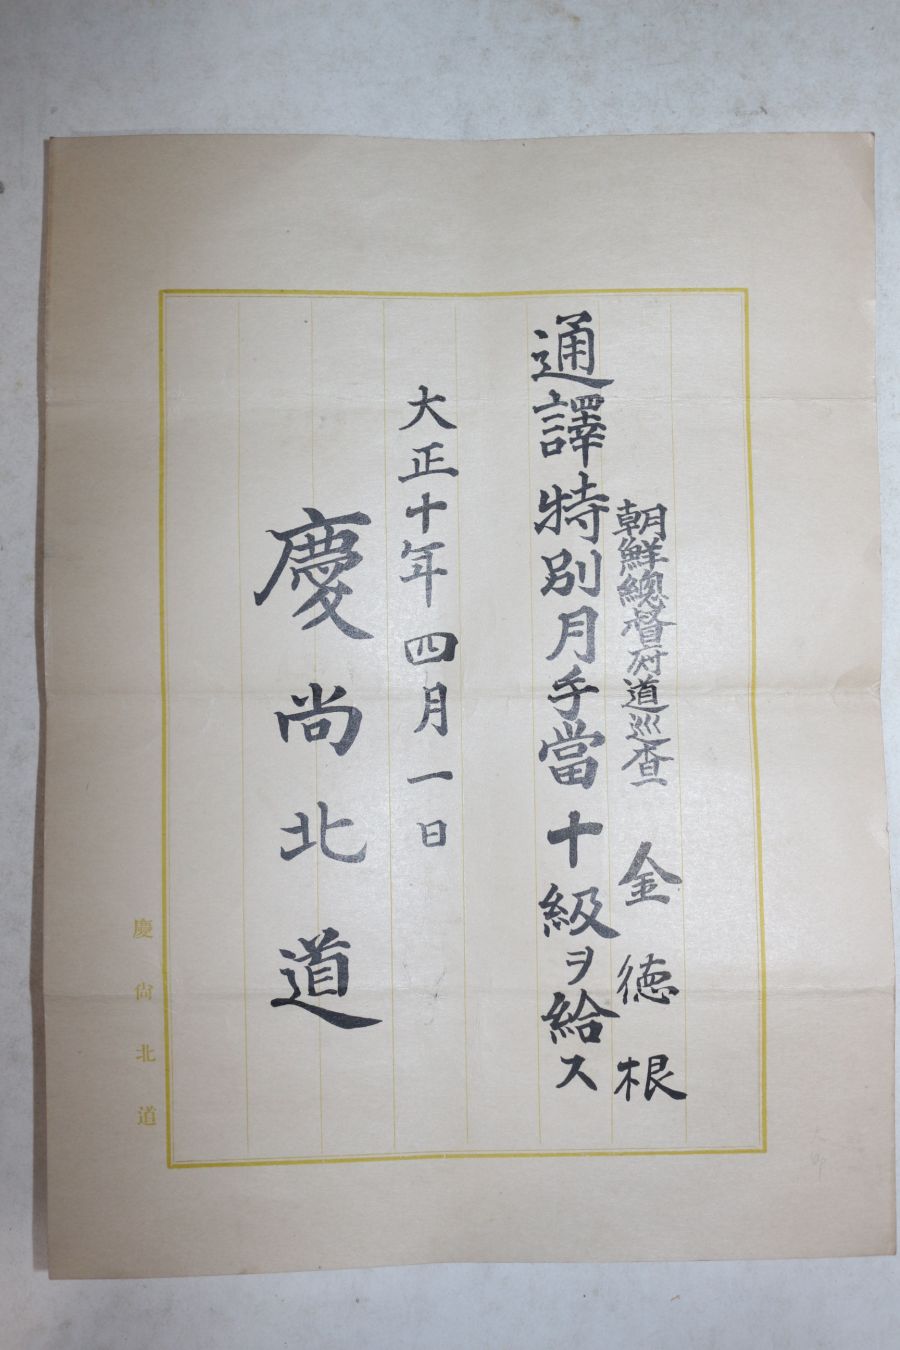 朝鮮總督府道巡査 金徳根
通譯特別月手當十級ヲ給ス
大正十年四月一日
慶尚北道
慶尚北道